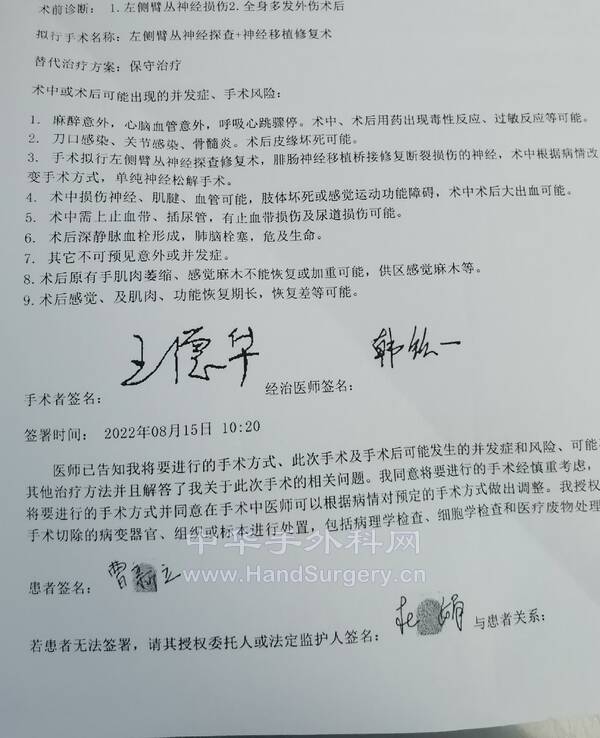 术前诊断： 1.左侧臂丛神经损伤2.全身多发外伤术后
拟行手术名称：左侧臂丛神经探查+神经移植修复术
替代治疗方案：保守治疗
术中或术后可能出现的并发症、手术风险：
1. 麻醉意外，心脑血管意外，呼吸心跳骤停。术中、术后用药出现毒性反应、过敏反应等可能。
2. 刀口感染、关节感染、骨髓炎。术后皮缘坏死可能。
3. 手术拟行左侧臂丛神经探查修复术，腓肠神经移植桥接修复断裂损伤的神经，术中根据病情改
变手术方式，单纯神经松解手术。
4. 术中损伤神经、肌腱、血管可能，肢体坏死或感觉运动功能障碍，术中术后大出血可能。
5. 术中需上止血带、插尿管，有止血带损伤及尿道损伤可能。
6. 术后深静脉血栓形成，肺脑栓塞，危及生命。
7. 其它不可预见意外或并发症。
8.术后原有手肌肉萎缩、感觉麻木不能恢复或加重可能，供区感觉麻木等。
9.术后感觉、及肌肉、功能恢复期长，恢复差等可能。
手术者签名： 王德华 经治医师签名： 韩
签署时间： 2022年08月15日 10:20
医师已告知我将要进行的手术方式、此次手术及手术后可能发生的并发症和风险、可能
其他治疗方法并且解答了我关于此次手术的相关问题。我同意将要进行的手术经慎重考虑，
将要进行的手术方式并同意在手术中医师可以根据病情对预定的手术方式做出调整。我授权
手术切除的病变器官、组织或标本进行处置，包括病理学检查、细胞学检查和医疗废物处理
中华手外科网
www.HandSurgery.cn
患者签名： 曹 立
若患者无法签署，请其授权委托人或法定监护人签名： 杜 娟 与患者关系：